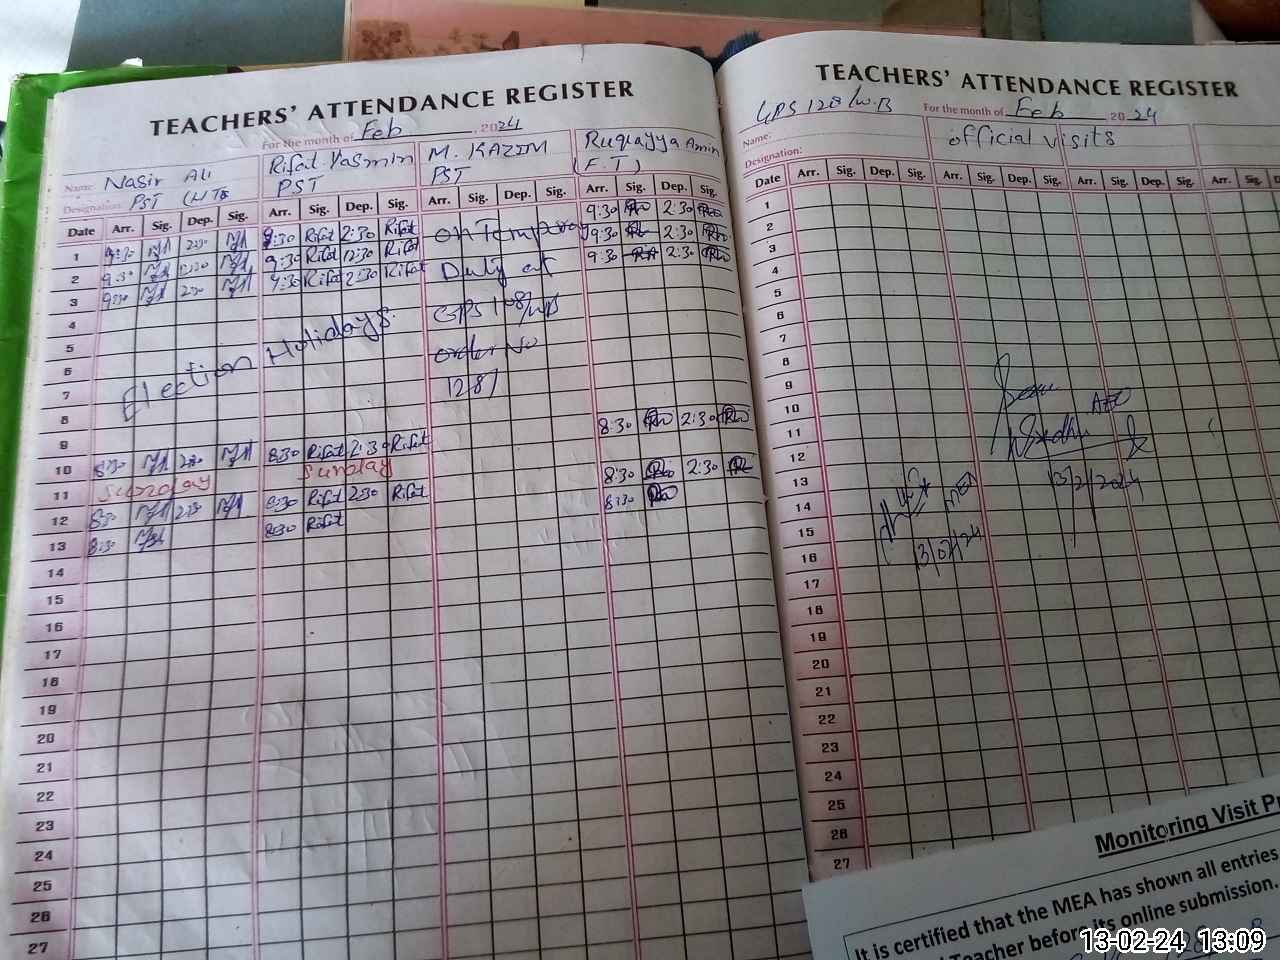 TEACHERS' ATTENDANCE REGISTER
For the month of Feb, 2024
Name: Nasir Ali Rifat Yasmin M. KAZIM Ruqayya Amin
Designation: PST PST PST (F.T)
Date Arr. Sig. Dep. Sig. Arr. Sig. Dep. Sig. Arr. Sig. Dep. Sig. Arr. Sig. Dep. Sig.
1 9:30 2:30 9:30 Rifat 2:30 Rifat on Temporary 9:30 2:30
2 9:30 12:30 9:30 Rifat 12:30 Rifat Duty at 9:30 2:30
3 9:30 2:30 9:30 Rifat 2:30 Rifat 9:30 2:30
4 GPS 108/WB
5 Election Holidays. order No
6 1287
7
8
9 8:30 2:30
10 8:30 2:30 8:30 Rifat 2:30 Rifat
11 Sunday Sunday 8:30 2:30
12 8:30 2:30 8:30 Rifat 2:30 Rifat 8:30
13 8:30 8:30 Rifat
14
15
16
17
18
19
20
21
22
23
24
25
26
27
TEACHERS' ATTENDANCE REGISTER
GPS 128/W.B For the month of Feb 2024
Name: official visits
Designation:
Date Arr. Sig. Dep. Sig. Arr. Sig. Dep. Sig. Arr. Sig. Dep. Sig. Arr. Sig.
1
2
3
4
5
6
7
8
9
10 AEO
11
12
13 13/2/2024
14
15
16 13/02/24
17
18
19
20
21
22
23
24
25
26
27
Monitoring Visit Pr
It is certified that the MEA has shown all entries
Teacher before its online submission.
13-02-24 13:09